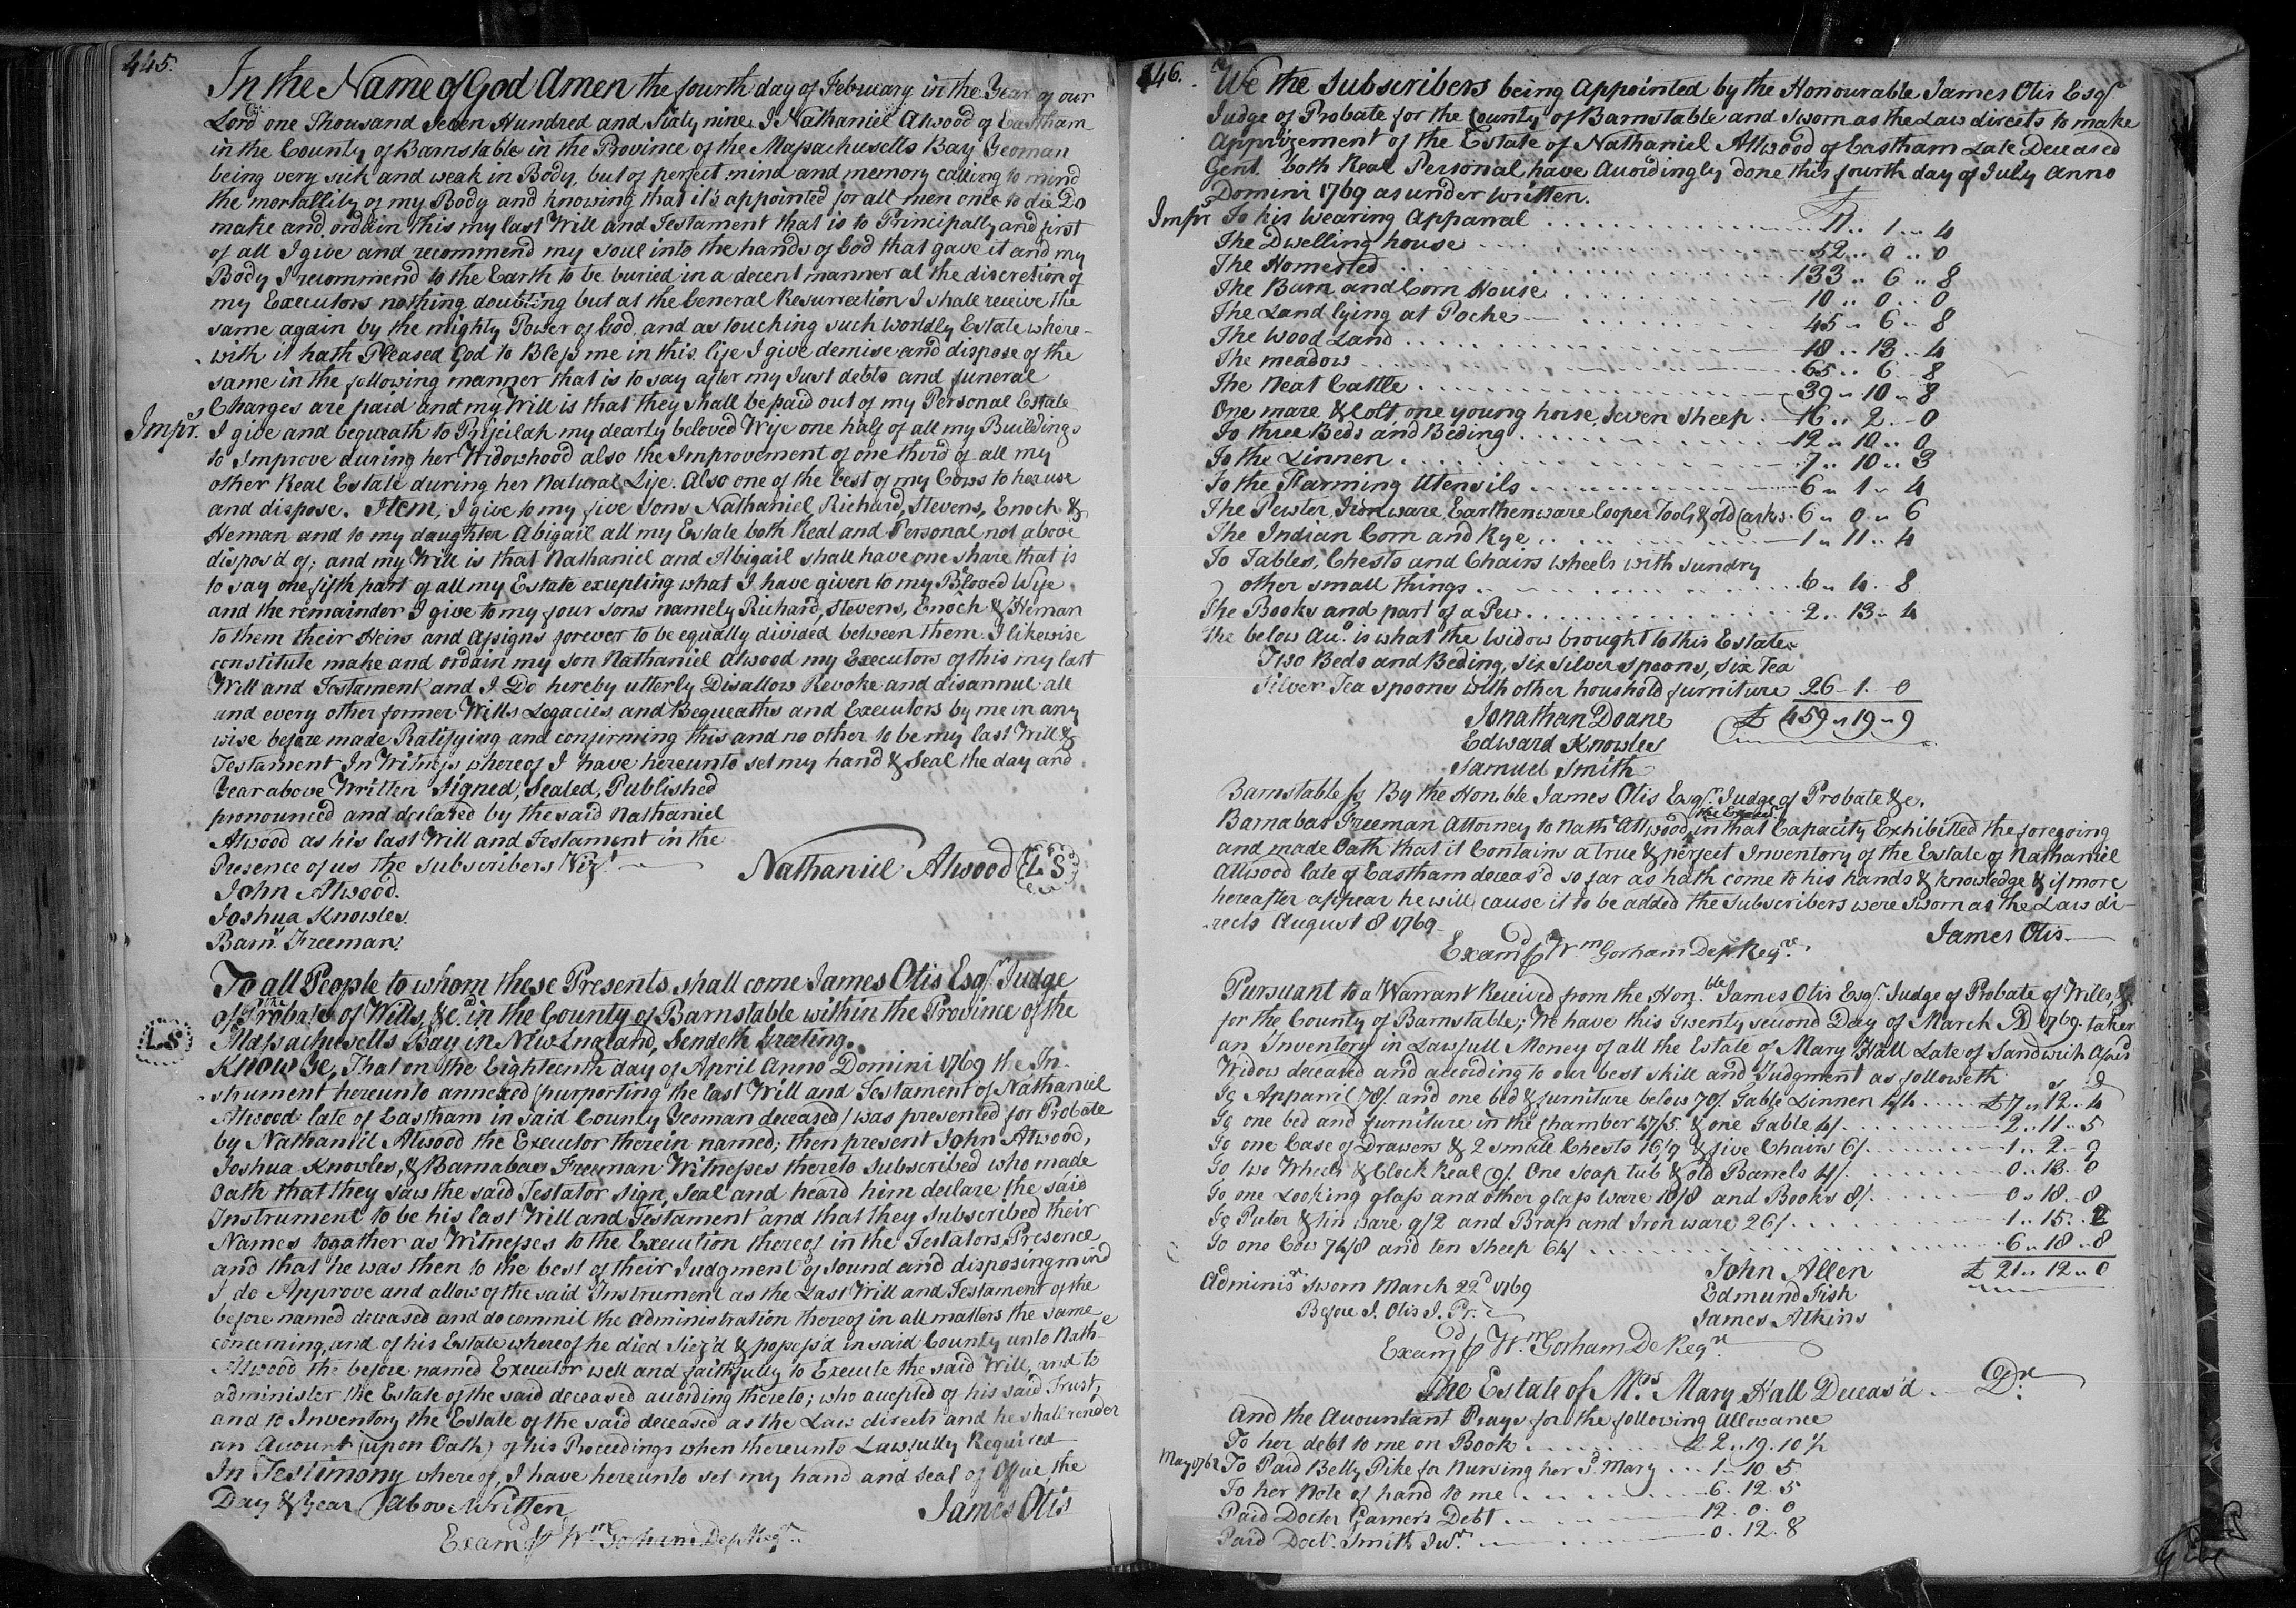 445.
In the Name of God Amen the fourth day of February in the Year of our
Lord one Thousand Seven Hundred and Sixty nine I Nathaniel Atwood of Eastham
in the County of Barnstable in the Province of the Massachusetts Bay Yeoman
being very sick and weak in Body, but of perfect mind and memory calling to mind
the mortallity of my Body and knowing that it's appointed for all men once to die Do
make and ordain this my last Will and Testament that is to Principally and first
of all I give and recommend my soul into the hands of God that gave it and my
Body I recommend to the Earth to be buried in a decent manner at the discretion of
my Executors nothing doubting but at the General Resurrection I shall receive the
same again by the mighty Power of God, and as touching such worldly Estate where-
with it hath Pleased God to Bless me in this life I give demise and dispose of the
same in the following manner that is to say after my Just debts and funeral
Charges are paid and my Will is that they shall be paid out of my Personal Estate
Imprs. I give and bequeath to Priscilah my dearly beloved Wife one half of all my Buildings
to Improve during her Widowhood also the Improvement of one third of all my
other Real Estate during her Natural Life. Also one of the best of my Cows to her use
and dispose. Item, I give to my five Sons Nathaniel, Richard, Stevens, Enoch &
Heman and to my daughter Abigail all my Estate both Real and Personal not above
dispos'd of; and my Will is that Nathaniel and Abigail shall have one share that is
to say one fifth part of all my Estate excepting what I have given to my Bloved Wife
and the remainder I give to my four sons namely Richard, Stevens, Enoch & Heman
to them their Heirs and Assigns forever to be equally divided between them. I likewise
constitute make and ordain my son Nathaniel Atwood my Executors of this my last
Will and Testament and I Do hereby utterly Disallow Revoke and disannul all
and every other former Wills Legacies and Bequeaths and Executors by me in any
wise before made Ratifying and confirming this and no other to be my last Will &
Testament In Witness whereof I have hereunto set my hand & Seal the day and
Year above Written Signed, Sealed, Published
pronounced and declared by the said Nathaniel
Atwood as his last Will and Testament in the
Presence of us the Subscribers Vizt.
Nathaniel Atwood (LS)
John Atwood.
Joshua Knowles.
Barns. Freeman.
To all People to whom these Presents shall come James Otis Esqr. Judge
of the Probate of Wills, &c. in the County of Barnstable within the Province of the
LS
Massachusetts Bay in New England, Sendeth Greeting.
Know Ye, That on the Eighteenth day of April Anno Domini 1769 the In-
strument hereunto annexed (purporting the last Will and Testament of Nathaniel
Atwood late of Eastham in said County Yeoman deceased) was presented for Probate
by Nathaniel Atwood the Executor therein named; then present John Atwood,
Joshua Knowles, & Barnabas Freeman Witnesses thereto Subscribed who made
Oath that they saw the said Testator sign, Seal and heard him declare the said
Instrument to be his last Will and Testament and that they Subscribed their
Names togather as Witnesses to the Execution thereof in the Testators Presence
and that he was then to the best of their Judgment of Sound and disposing mind
I do Approve and allow of the said Instrument as the Last Will and Testament of the
before named deceased and do commit the administration thereof in all matters the same
concerning, and of his Estate whereof he died Siez'd & possess'd in said County unto Nathe
Atwood the before named Executor well and faithfully to Execute the said Will, and to
administer the Estate of the said deceased according thereto; who accepted of his said Trust,
and to Inventory the Estate of the said deceased as the Law directs and he shall render
an Account (upon Oath) of his Proceedings when thereunto Lawfully Required
In Testimony whereof, I have hereunto set my hand and Seal of Office, the
Day & Year Above Written
James Otis
Examd p Wm Gorham Dep Regr.
446.
We the Subscribers being Appointed by the Honourable James Otis Esqr.
Judge of Probate for the County of Barnstable and Sworn as the Law directs to make
Apprizement of the Estate of Nathaniel Attwood of Eastham Late Deceased
Gent. both Real Personal, have Accordingly done this fourth day of July Anno
Domini 1769 as under written.
Impr To his Wearing Apparral 11 .. 1 .. 4
The Dwelling house 52 .. 0 .. 0
The Homested 133 .. 6 .. 8
The Barn and Corn House 10 .. 0 .. 0
The Land lying at Poche 45 .. 6 .. 8
The Wood Land 18 .. 13 .. 4
The meadow 65 .. 6 .. 8
The Neat Cattle 39 .. 10 .. 8
One mare & Colt one young horse, Seven Sheep 16 .. 2 .. 0
To three Beds and Beding 12 .. 10 .. 0
To the Linnen 7 .. 10 .. 3
To the Farming Utensils 6 .. 1 .. 4
The Pewter, Ironware, Earthenware Cooper Tools & old Casks 6 .. 0 .. 6
The Indian Corn and Rye 1 .. 11 .. 4
To Tables, Chests and Chairs wheels with sundry
other small things 6 .. 4 .. 8
The Books and part of a Pew 2 .. 13 .. 4
The below Acco. is what the Widow brought to this Estate
Two Beds and Beding, Six Silver spoons, Six Tea
Silver Tea spoons with other houshold furniture 26 - 1 - 0
Jonathan Doane £ 459 .. 19 .. 9
Edward Knowles
Samuel Smith
Barnstable ss By the Honble James Otis Esqr. Judge of Probate &c.
Barnabas Freeman Attorney to Nathl Attwood the Execr. in that Capacity Exhibitted the foregoing
and made Oath that it Contains a true & perfect Inventory of the Estate of Nathaniel
Attwood late of Eastham deceas'd so far as hath come to his hands & knowledge & if more
hereafter appear he will cause it to be added the Subscribers were Sworn as the Law di-
rects August 8 1769
James Otis
Examd p Wm Gorham Dep Regr.
Pursuant to a Warrant Received from the Honble. James Otis Esqr. Judge of Probate of Wills, &
for the County of Barnstable; We have this Twenty second Day of March AD 1769. taken
an Inventory in Lawfull Money of all the Estate of Mary Hall Late of Sandwich afores'd
Widow deceased and according to our best skill and Judgment as followeth
s d
To Apparril 78/. and one bed & furniture below 70/. Table Linnen 4/4 £7 .. 12 .. 4
To one bed and furniture in the Chamber 47/5. & one Table 4/. 2 .. 11 .. 5
To one Case of Drawers & 2 small Chests 16/9 & five Chairs 6/. 1 .. 2 .. 9
To two Wheels & Clock Real 9/. One Soap tub & old Barrels 4/. 0 .. 13 .. 0
To one Looking glass and other glass ware 10/8 and Books 8/. 0 .. 18 .. 8
To Puter & tin ware 9/2 and Brass and Iron ware 26/. 1 .. 15 .. 2
To one Cow 74/8 and ten Sheep 64/ 6 .. 18 .. 8
John Allen £ 21 .. 12 .. 0
Adminisr Sworn March 22d 1769
Edmund Fish
Before J. Otis J. Pr.
James Atkins
Examd p Wm. Gorham De Regr.
The Estate of Mrs. Mary Hall Deceas'd. Dr.
And the Accountant Prays for the following Allowance
To her debt to me on Book £ 2 .. 19 . 10 1/2
May 1762 To Paid Betty Pike for Nursing her Sd. Mary 1 .. 10 . 5
To her Note of hand to me 6 . 12 . 5
Paid Docter Gamers Debt 12 . 0 . 0
Paid Doctr. Smith Junr. 0 . 12 . 8